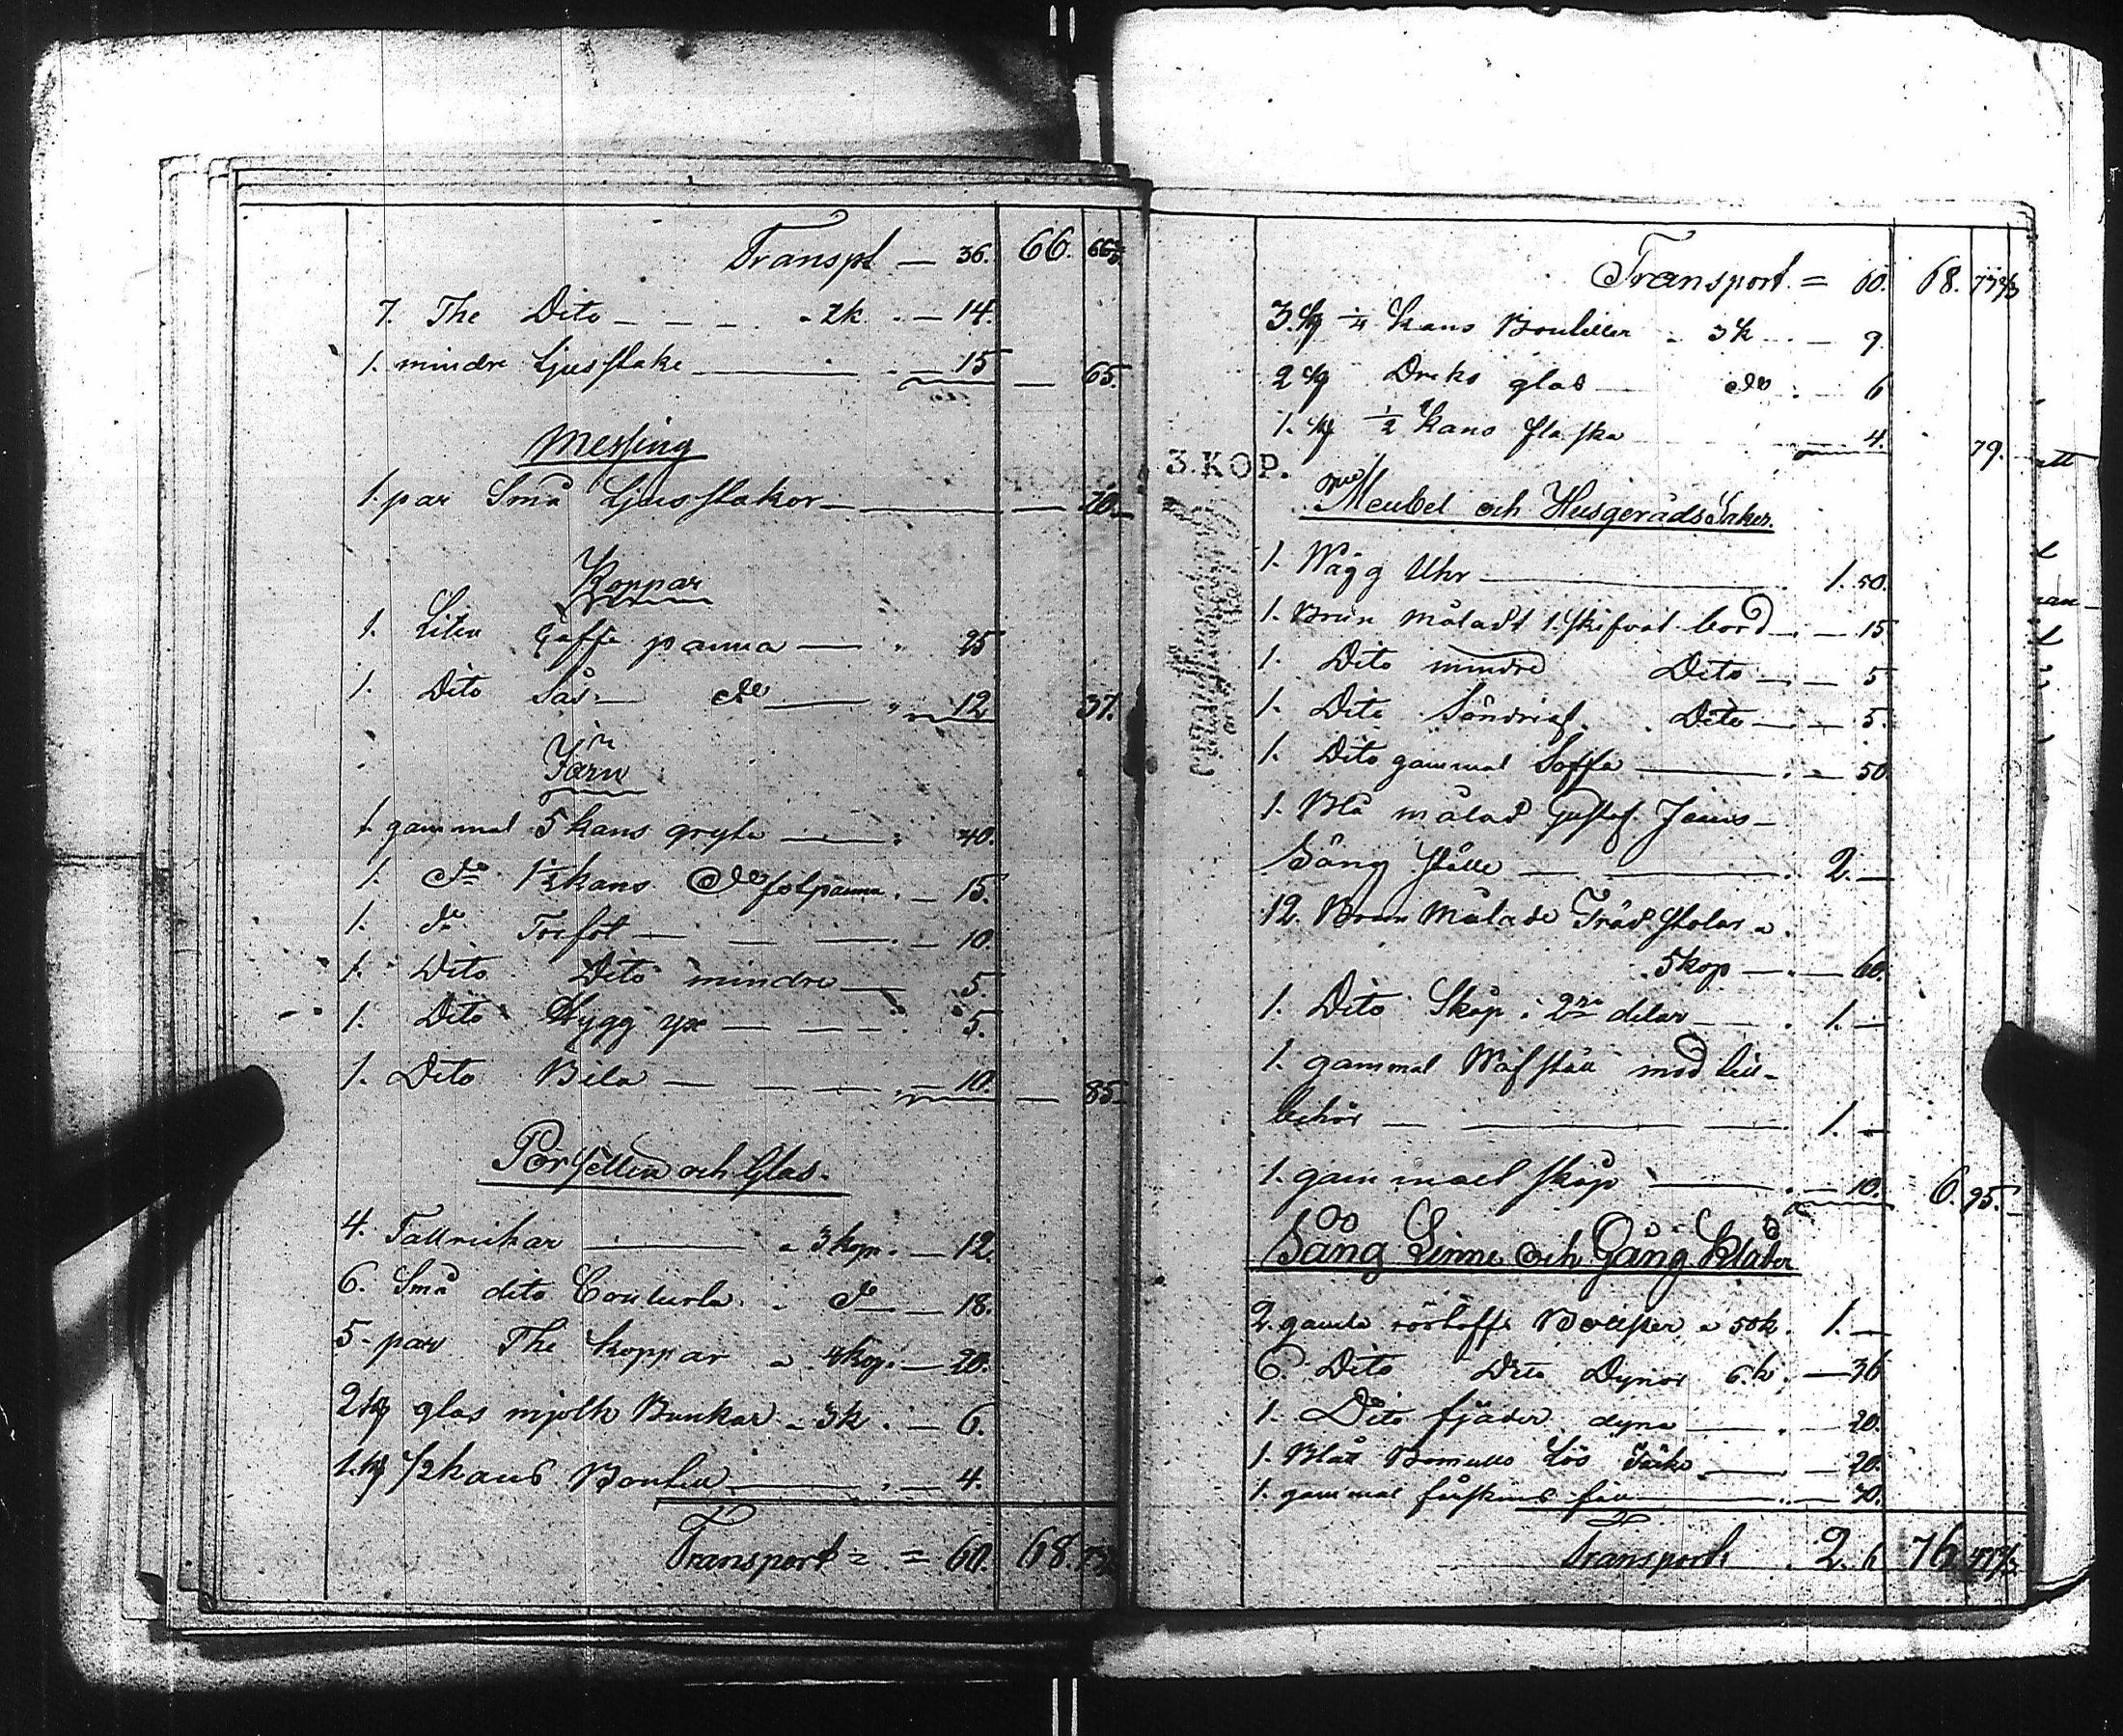 Transpt — 36. 66. 66⅔
7. The Dito — — — a 2k. — 14.
1. mindre Ljusstake — 15 — 65.
Messing
1. par Små Ljusstakor — — 20.
Koppar
1. Liten Caffe panna — " 25
1. Dito Sås — do — " 12 37.
Järn
1. gammal 5 kans gryta — " 40.
1. do 1½ kans do fotpanna. — 15.
1. do Trefot — — — — 10
1. Dito Dito mindre — 5.
1. Dito Hygg yx — — — 5.
1. Dito Bila — — — 10 — 85.
Porsellin och Glas.
4. Tallrickar — a 3 kop. — 12.
6. Små dito Couleurta a do — 18.
5. par The koppar a 4 kop. — 20.
2 st glas mjölk Bunkar a 3k. — 6.
1. st ½ kans Boutell — " — 4.
Transport = = 60. 68. 73⅔
Transport = 60. 68. 73⅔
3. st ¼ kans Bouteller a 3k — 9
2 st Dricks glas — do — 6
1. st ½ kans flaska — 4. 79.
3. KOP.
Meubel och Husgeråds Saker.
1. Wägg Uhr — 1. 50.
1. Brun måladt 1. skifvat bord — 15
1. Dito mindre Dito — — 5
1. Dito Söndrigt Dito — — 5.
1. Dito gammal Soffa — — 50
1. Blå målad Gustaf Jans-
Säng ställe — — 2. —
12. Brun Målade Träd stolar a
5 kop — — 60.
1. Dito Skåp i 2ne delar — 1. —
1. gammal Wäfstall med till-
behör — — — 1. —
1. gammalt skåp — — 10. 6. 95.
Säng Linne och Gång Kläder
2. gamla Bolster a 50k. 1. —
6. Dito Dito Dynor 6.k. — 36
1. Dito fjäder dyna — — 20.
1. Blå Bomulls Lös Täcke — — 20.
1. gammal fårskins fäll — — 30.
Transport 2. 6 76. 47⅔